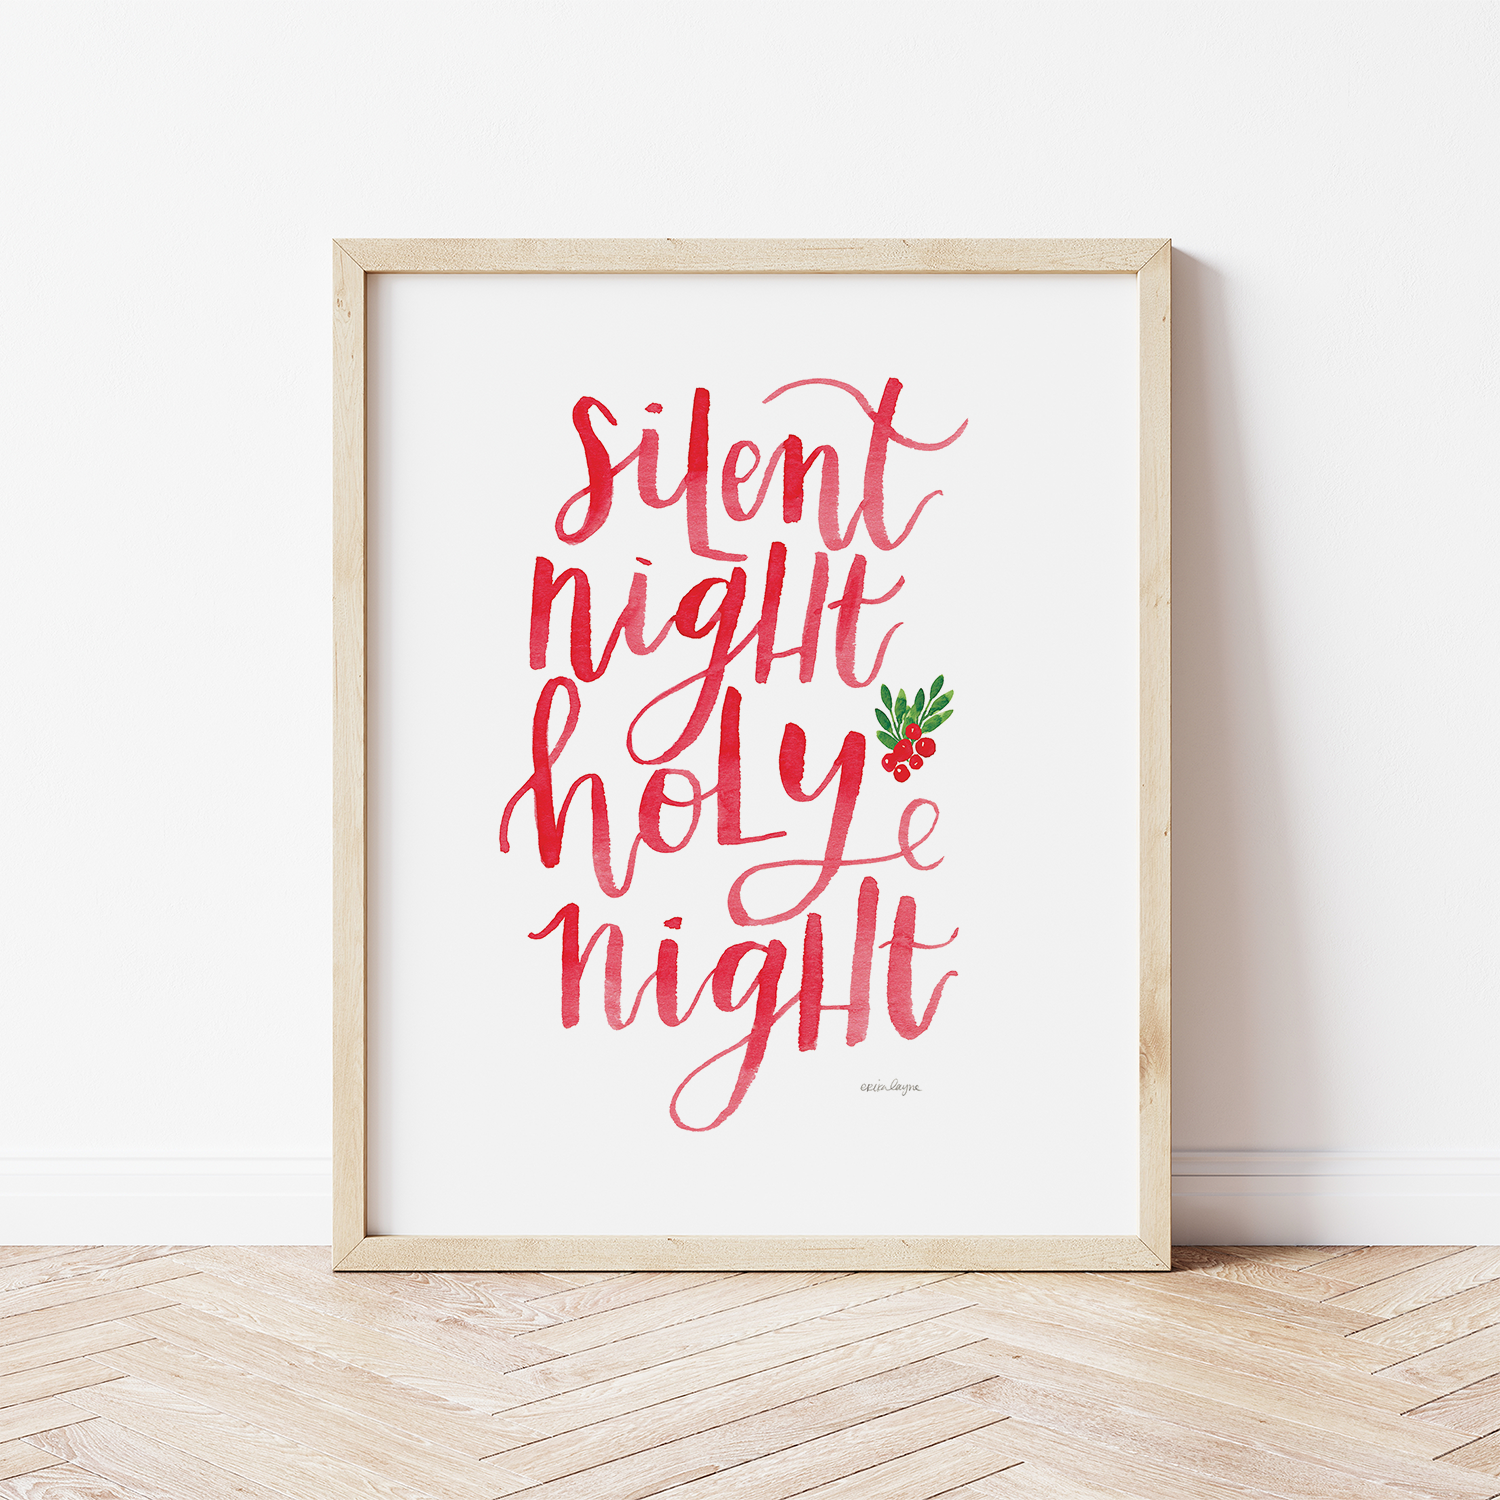 silent
night
holy
night
erin layne